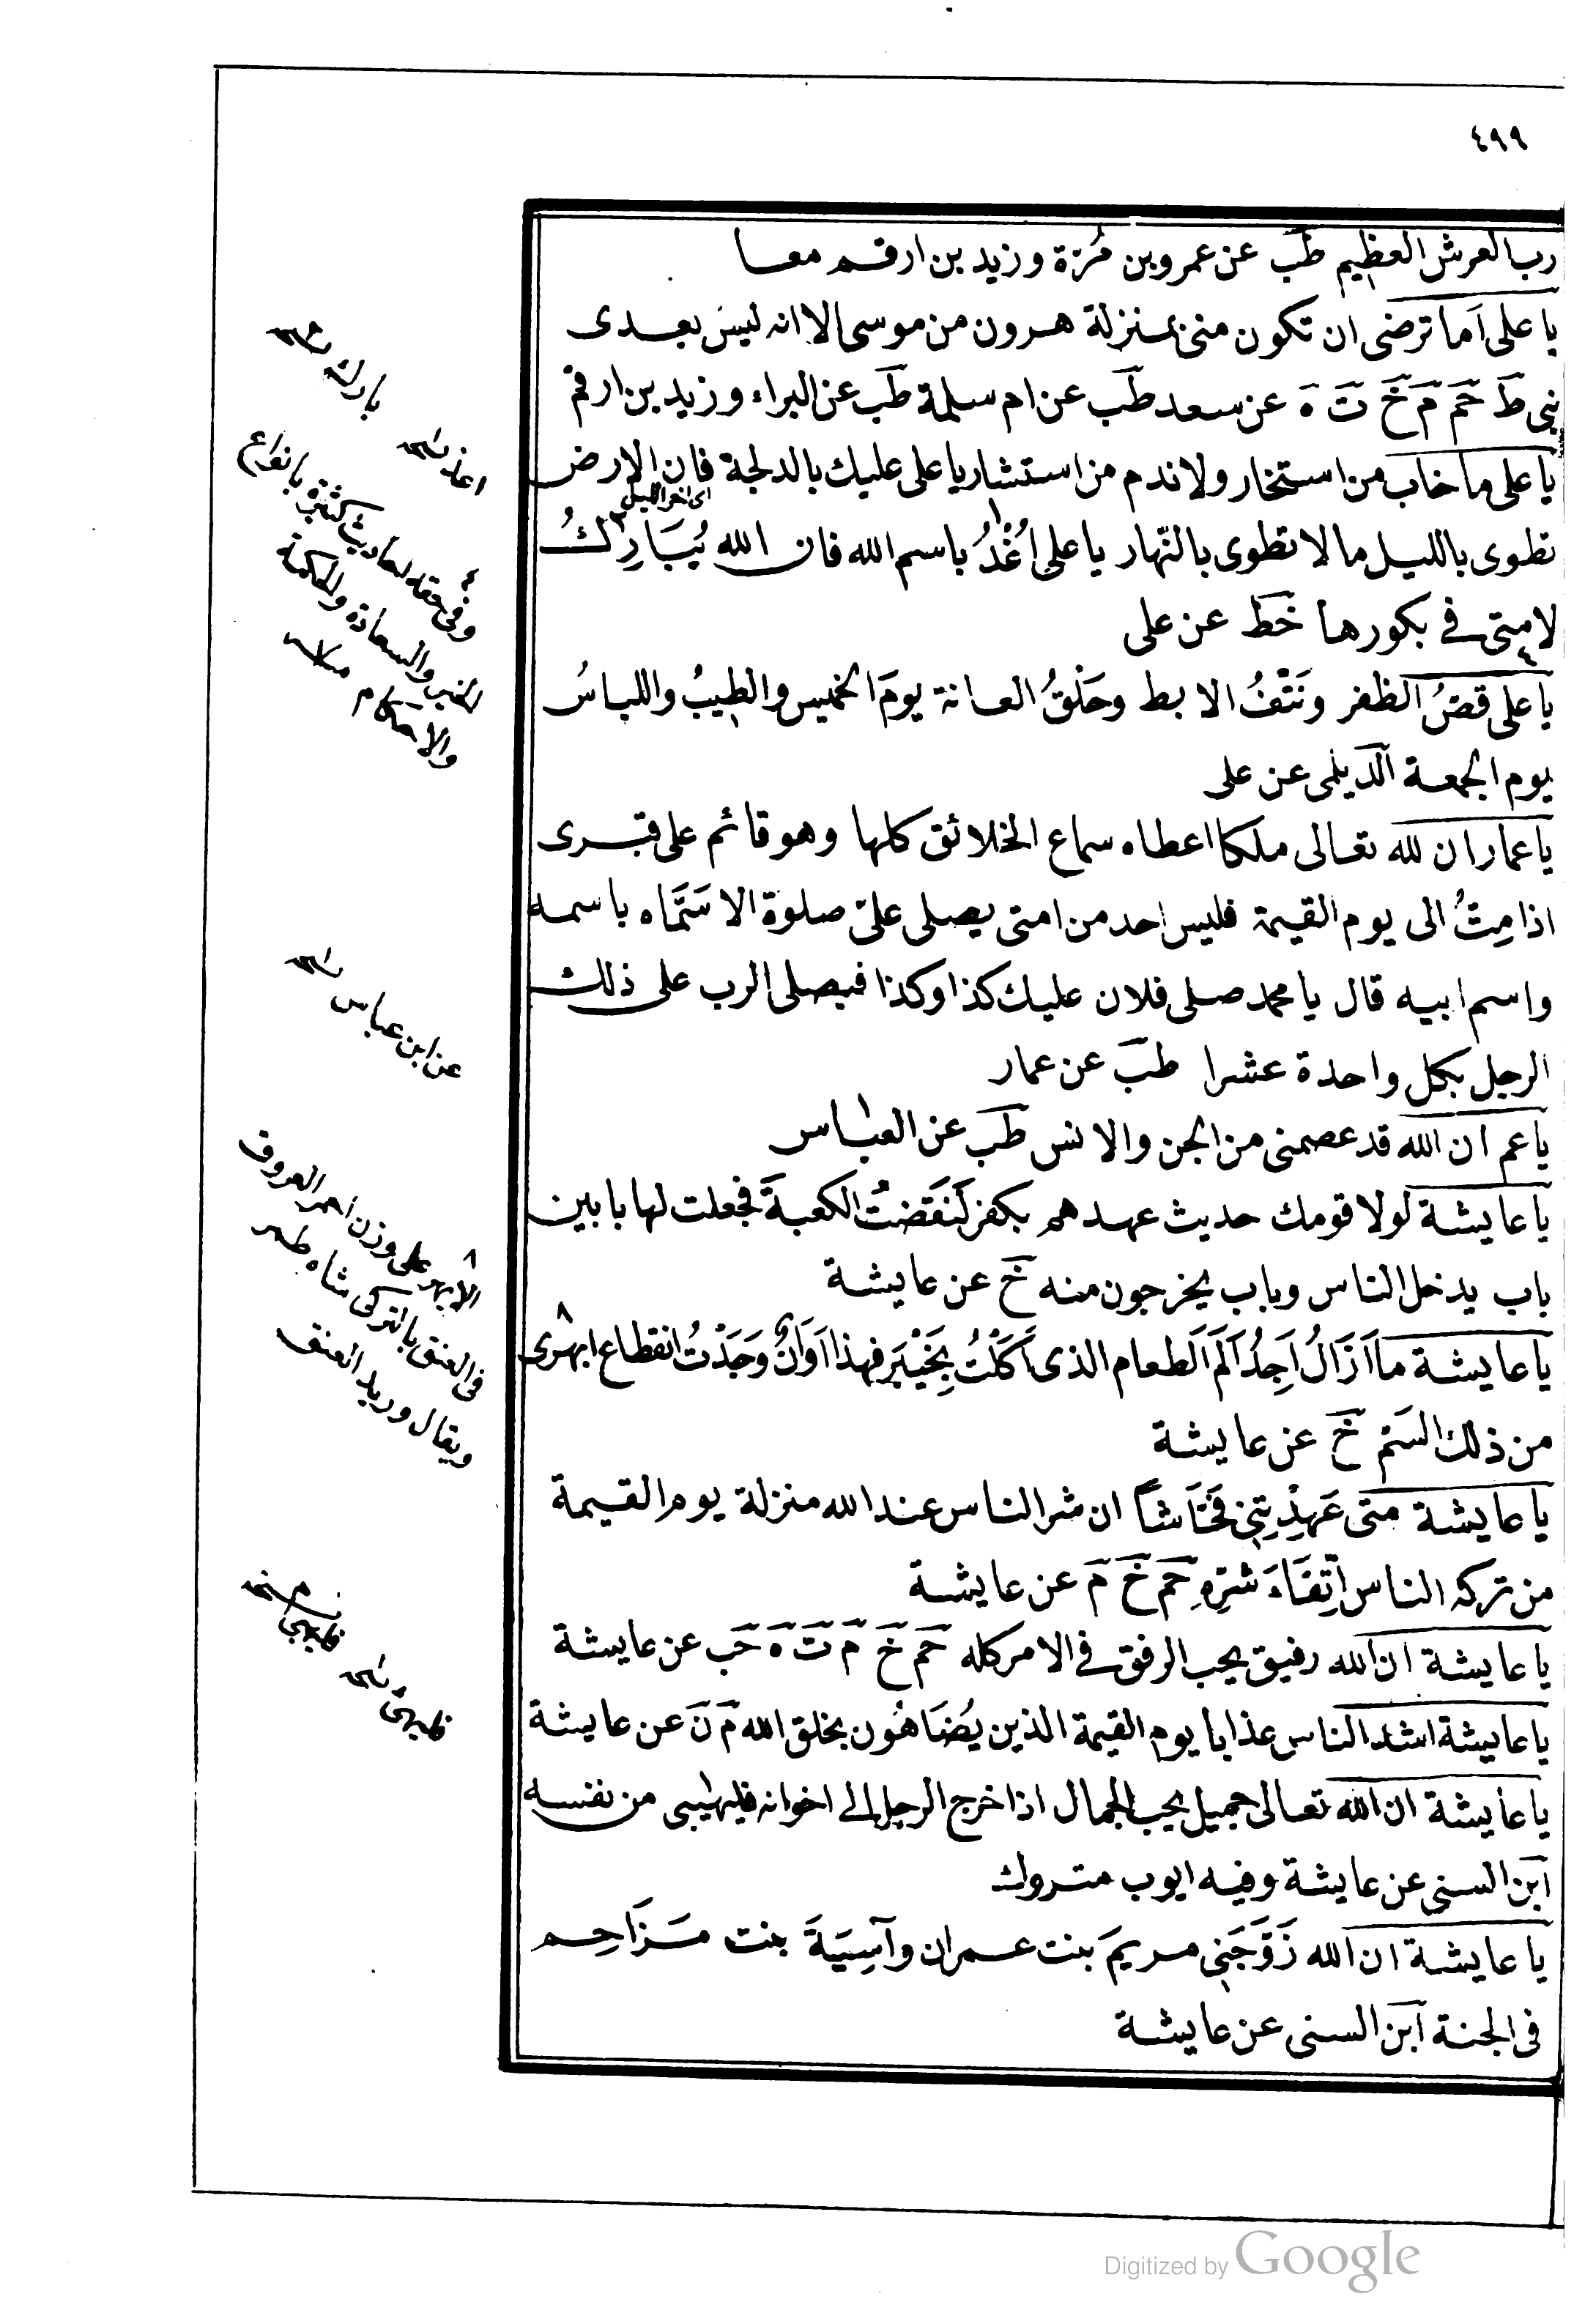 ٤٩٩
رب العرش العظيم طب عن عمرو بن مُرّة وزيد بن ارقم معا
يا على اَما ترضى ان تكون منى بمنزلة هرون من موسى الا انه ليس بعدى
نبى ط حم م خ ت ه عن سعد طب عن ام سلمة طب عن البراء وزيد بن ارقم
يا على ما خاب من استخار ولا ندم من استشار يا على عليك بالدلجة فان الارض
اى اخر الليل
تطوى بالليل ما لا تطوى بالنّهار يا على اُغْدُ باسم الله فان الله يُبَارِكُ
لامتى فى بكورها خط عن على
يا على قصُّ الظفر ونَتْفُ الابط وحَلْقُ العانة يومَ الخميس والطِيبُ واللباسُ
يوم الجمعة الديلمى عن على
يا عمار ان لله تعالى ملكا اعطاه سماع الخلائق كلها وهو قائم على قبرى
اذا مِتُّ الى يوم القيمة فليس احد من امتى يصلى علىّ صلوة الا سَمَّاه باسمه
واسم ابيه قال يا محمد صلى فلان عليك كذا وكذا فيصلى الرب على ذلك
الرجل بكل واحدة عشرا طب عن عمار
يا عم ان الله قد عصمنى من الجن والانس طب عن العباس
يا عايشة لولا قومك حديث عهدهم بكفر لَنَقَضتُ الكعبةَ فجعلت لها بابين
باب يدخل الناس وباب يخرجون منه خ عن عايشة
يا عايشة ما اَزَالُ اَجِدُ اَلَمَ الطعام الذى اَكَلْتُ بِخَيْبَر فهذا اَوَانُ وَجَدْتُ انقطاع ابهرى
من ذلك السَّمّ خ عن عايشة
يا عايشة متى عَهِدْتِنِى فَحَّاشاً ان شر الناس عند الله منزلة يوم القيمة
من تركه الناس اتِّقَاءَ شَرِّهِ حم خ م عن عايشة
يا عايشة ان الله رفيق يحب الرفق فى الامر كله حم خ م ت ه حب عن عايشة
يا عايشة اشد الناس عذابا يوم القيمة الذين يُضَاهُون بخلق الله م ن عن عايشة
يا عايشة ان الله تعالى جميل يحب الجمال اذا خرج الرجل الى اخوانه فليهيىء من نفسه
ابن السنى عن عايشة وفيه ايوب متروك
يا عايشة ان الله زَوَّجَنِى مريمَ بنت عمران وآسِيَةَ بنت مزاحِم
فى الجنة ابن السنى عن عايشة
بارك
اغد
وفى حقه احاديث كثيرة بانواع
الخير والسعادة والحكمة
والاحكام
عن ابن عباس
الابهر على وزن احمر العروف
فى العنق بالتركى شاه طمر
ويقال وريد العنق
Digitized by Google